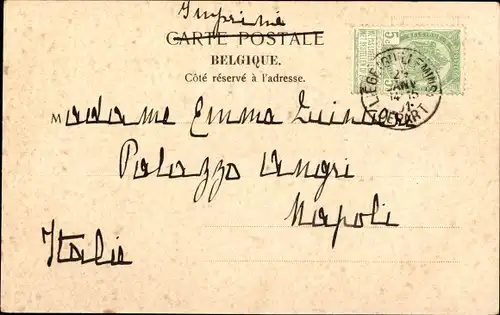 Imprimé
CARTE POSTALE
BELGIQUE.
Côté réservé à l'adresse.
LIÈGE (GUILLEMINS)
JANV
14-15
DÉPART
Madame Emma
Palazzo Angri
Napoli
Italie